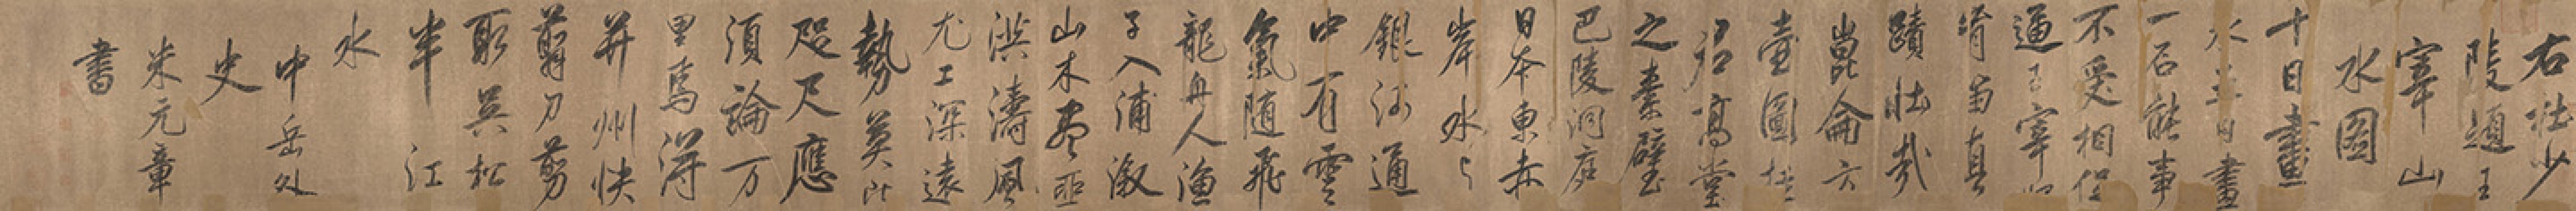 右杜少
陵題王
宰山
水圖
十日畫
水五日畫
一石能事
不受相促
逼王宰始
肯留真
蹟壯哉
崑崙方
壺圖挂
君高堂
之素壁
巴陵洞庭
日本東赤
岸水〻
銀河通
中有雲
氣隨飛
龍舟人漁
子入浦漵
山木盡亞
洪濤風
尤工深遠
勢莫比
咫尺應
須論万
里焉得
并州快
翦刀剪
取吳松
半江
水
中岳外
史
米元章
書